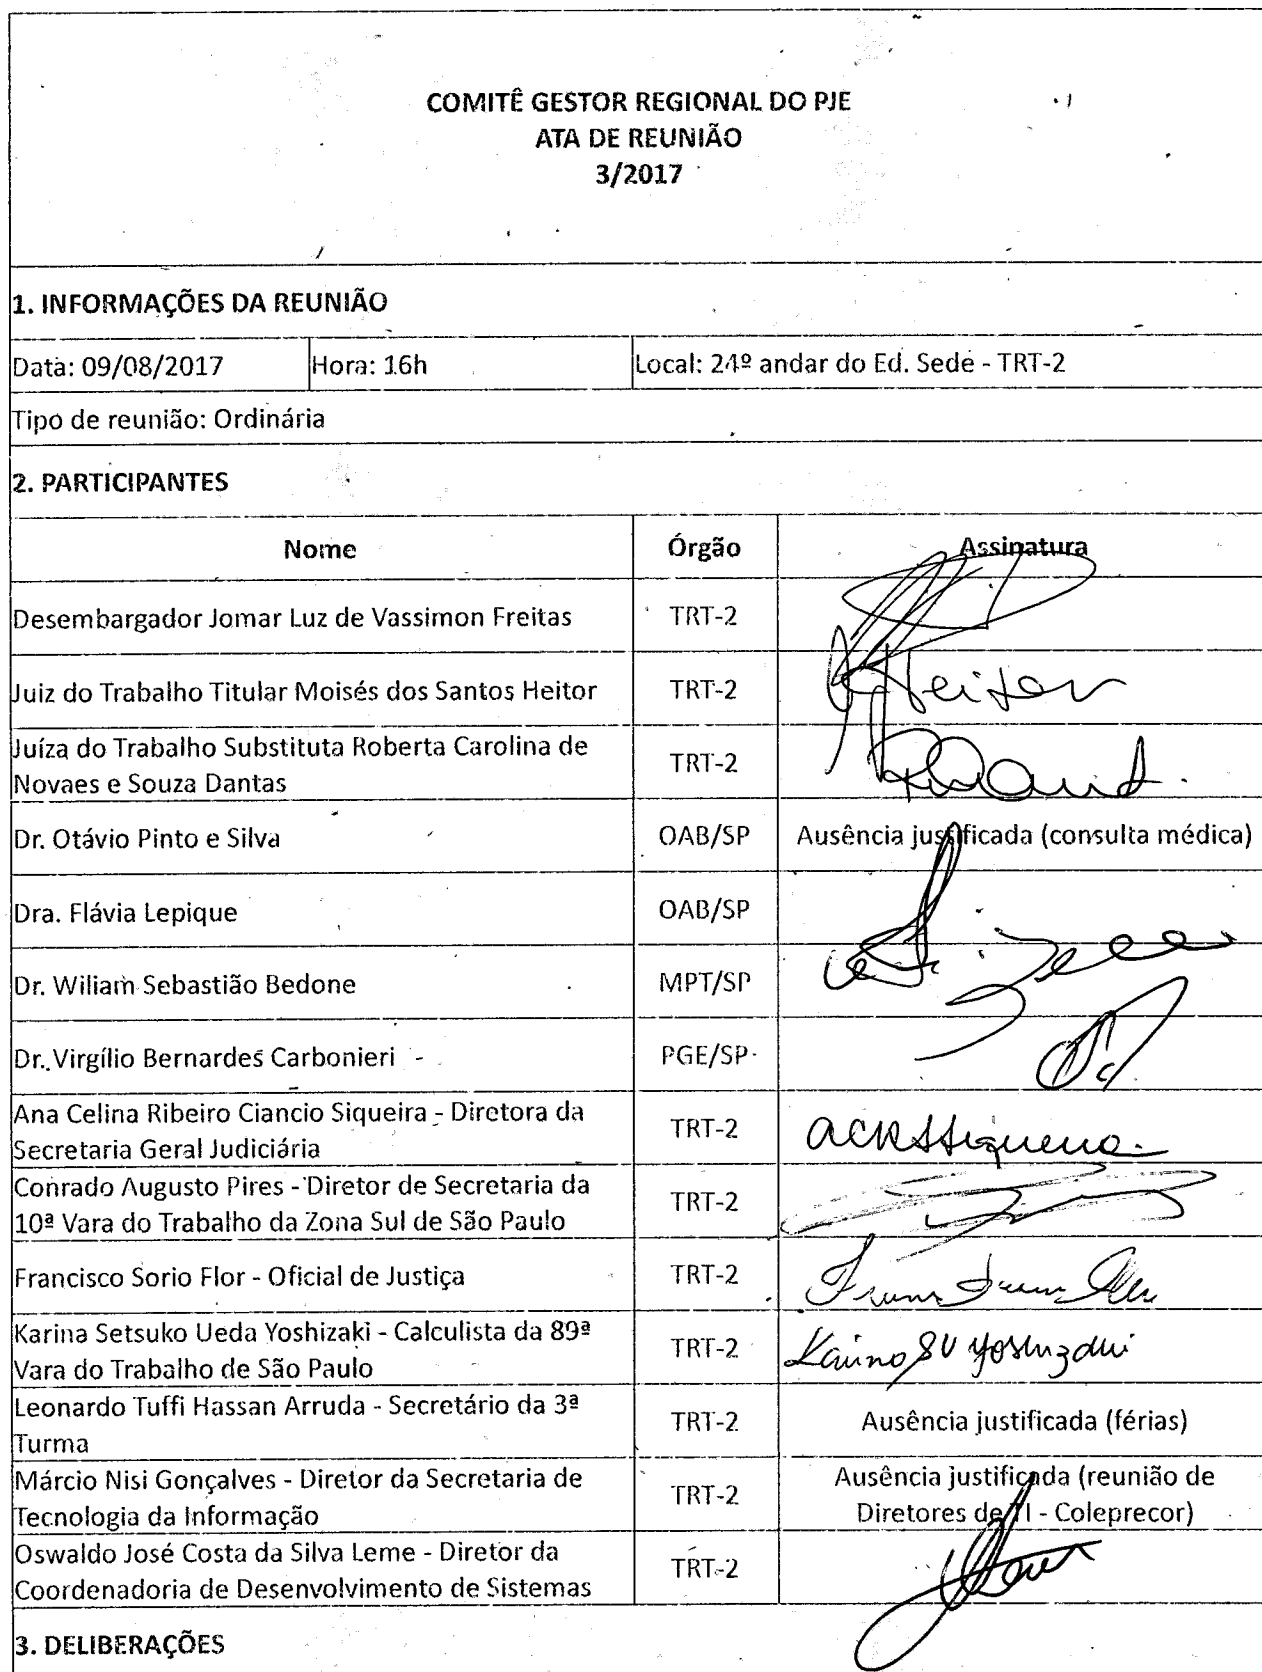 COMITÊ GESTOR REGIONAL DO PJE
ATA DE REUNIÃO
3/2017
1. INFORMAÇÕES DA REUNIÃO
Data: 09/08/2017 Hora: 16h Local: 24º andar do Ed. Sede - TRT-2
Tipo de reunião: Ordinária
2. PARTICIPANTES
Nome Órgão Assinatura
Desembargador Jomar Luz de Vassimon Freitas TRT-2
Juiz do Trabalho Titular Moisés dos Santos Heitor TRT-2 Heitor
Juíza do Trabalho Substituta Roberta Carolina de
Novaes e Souza Dantas TRT-2
Dr. Otávio Pinto e Silva OAB/SP Ausência justificada (consulta médica)
Dra. Flávia Lepique OAB/SP
Dr. Wiliam Sebastião Bedone MPT/SP
Dr. Virgílio Bernardes Carbonieri - PGE/SP
Ana Celina Ribeiro Ciancio Siqueira - Diretora da
Secretaria Geral Judiciária TRT-2 ACRSSiqueira
Conrado Augusto Pires - Diretor de Secretaria da
10ª Vara do Trabalho da Zona Sul de São Paulo TRT-2
Francisco Sorio Flor - Oficial de Justiça TRT-2
Karina Setsuko Ueda Yoshizaki - Calculista da 89ª
Vara do Trabalho de São Paulo TRT-2 Karina SU Yoshizaki
Leonardo Tuffi Hassan Arruda - Secretário da 3ª
Turma TRT-2 Ausência justificada (férias)
Márcio Nisi Gonçalves - Diretor da Secretaria de
Tecnologia da Informação TRT-2 Ausência justificada (reunião de
Diretores de TI - Coleprecor)
Oswaldo José Costa da Silva Leme - Diretor da
Coordenadoria de Desenvolvimento de Sistemas TRT-2
3. DELIBERAÇÕES